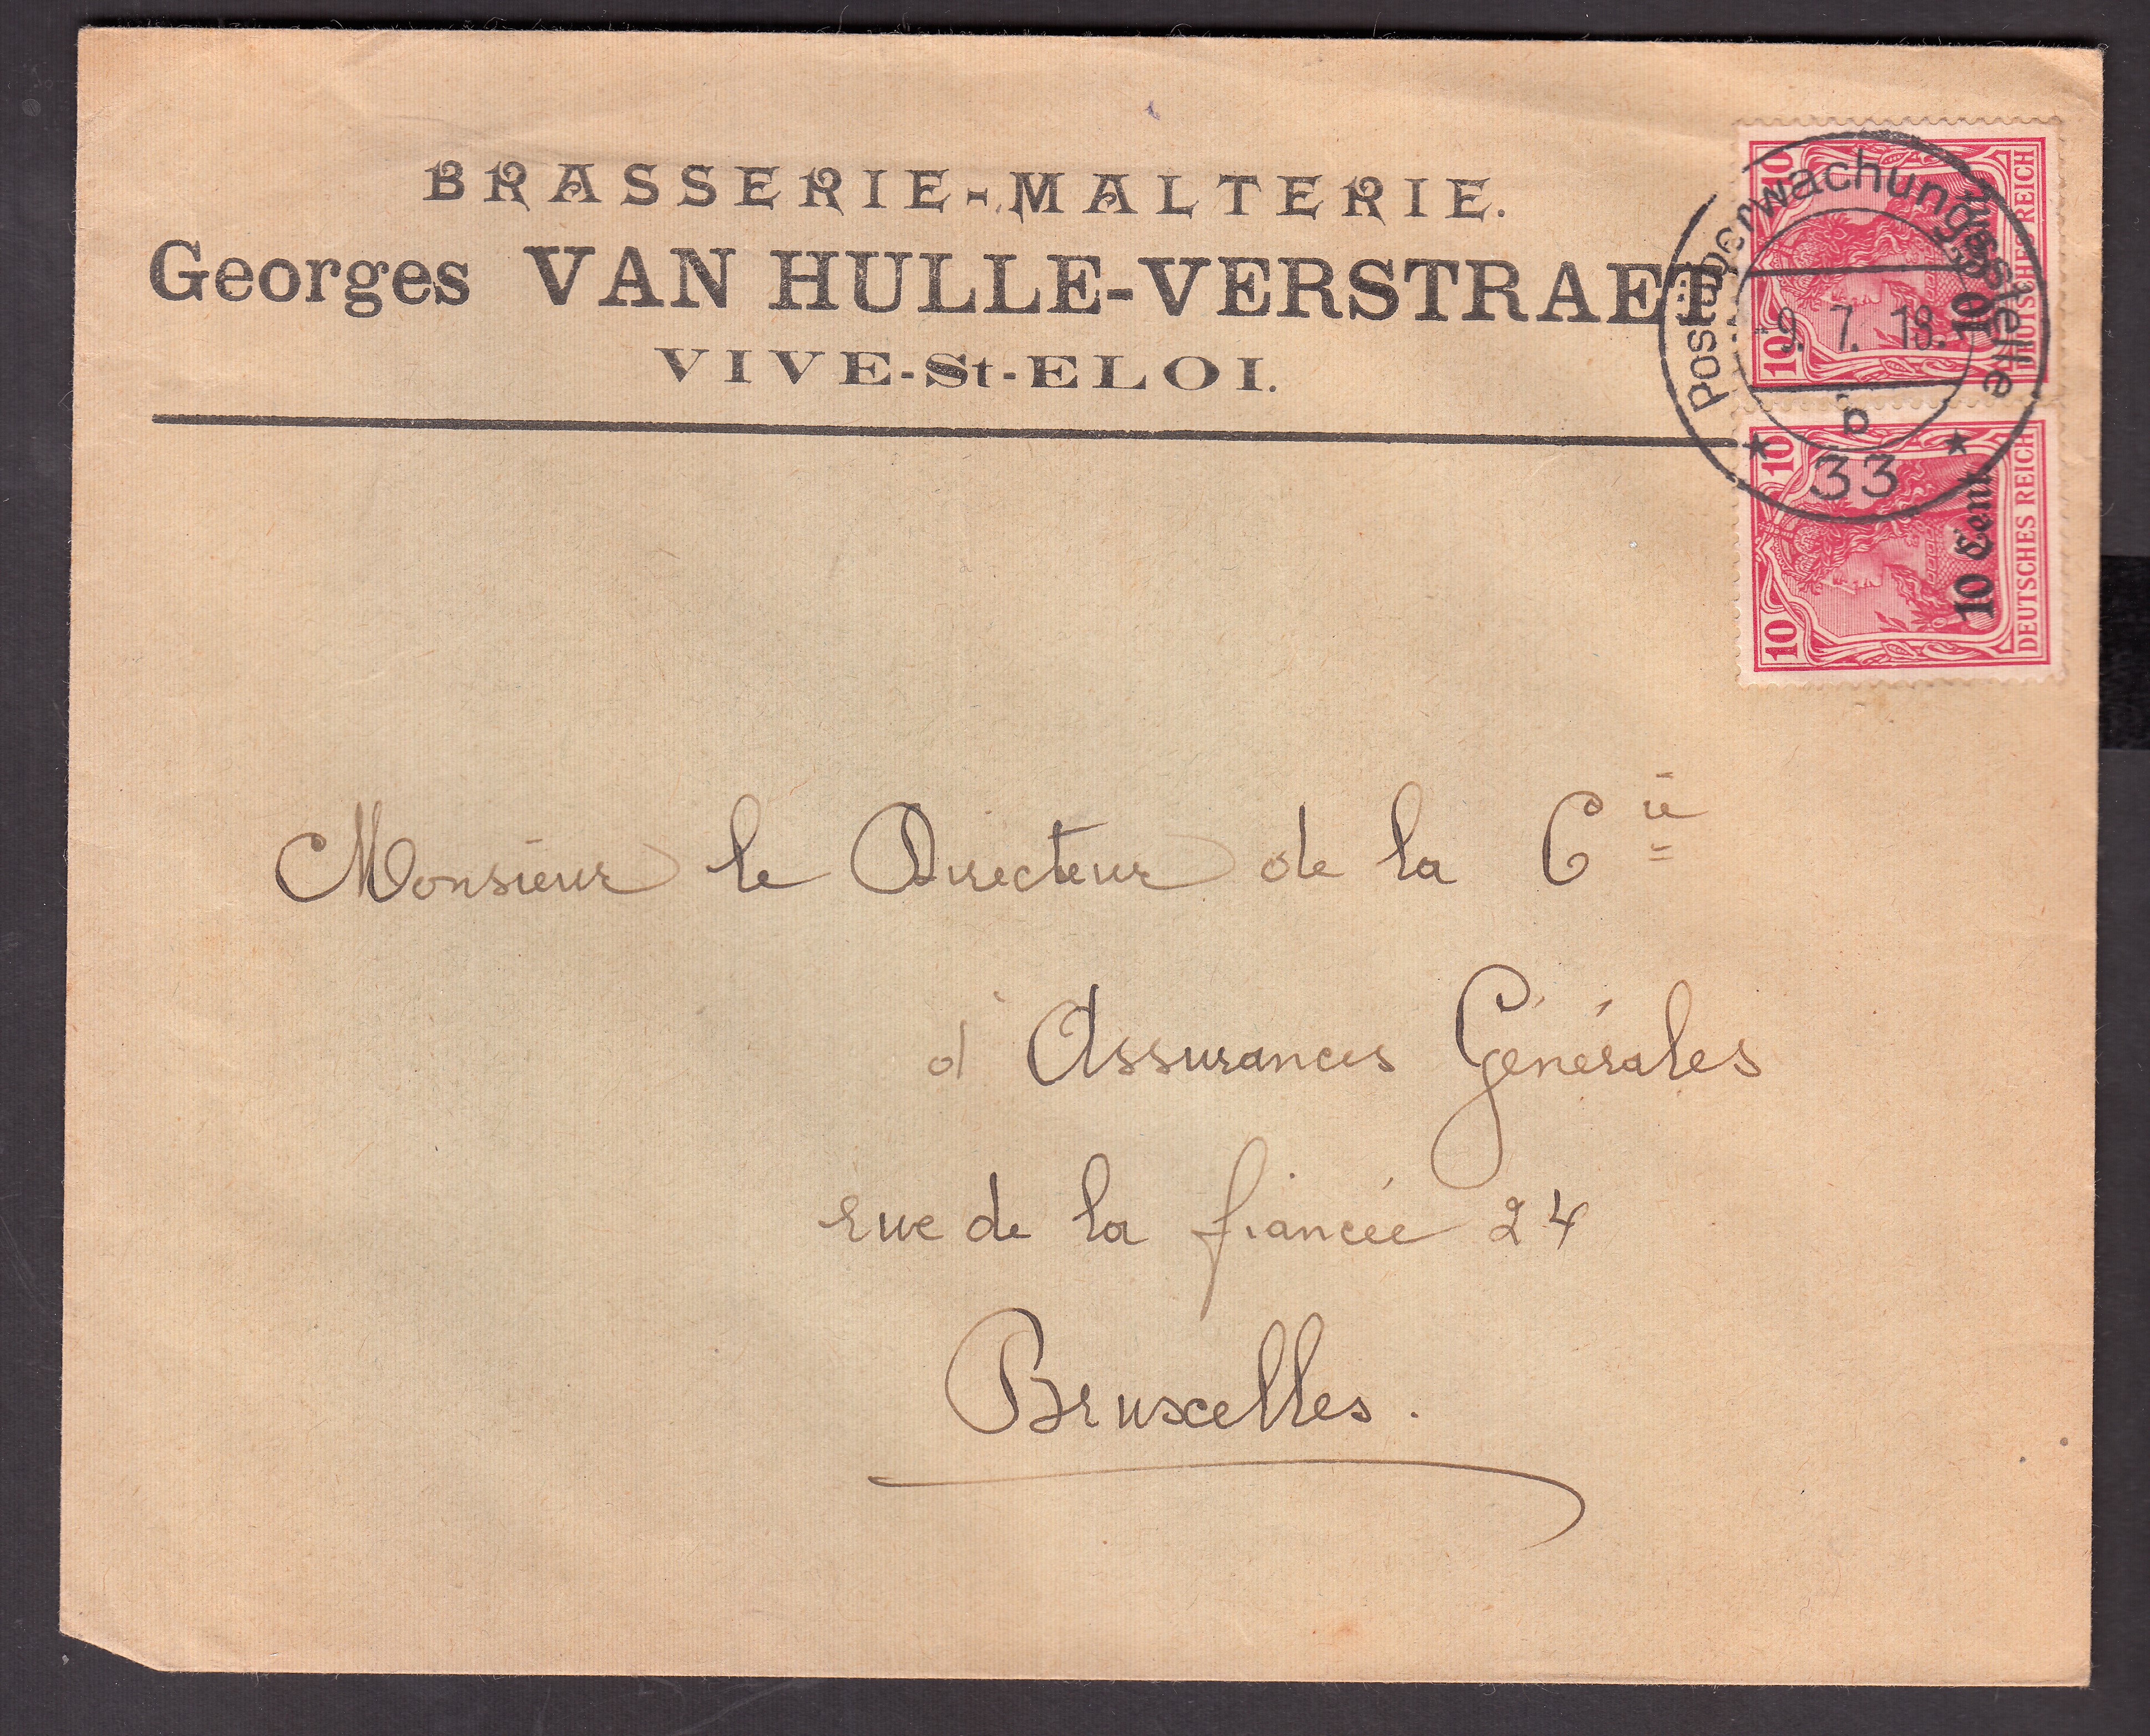 BRASSERIE-MALTERIE.
Georges VAN HULLE-VERSTRAET
VIVE-St-ELOI.
Postüberwachungsstelle
-9. 7. 18.
b
33
10 10
DEUTSCHES REICH
10 Cent.
10 10
DEUTSCHES REICH
10 Cent.
Monsieur le Directeur de la Cie
d'Assurances Générales
rue de la fiancée 24
Bruxelles.